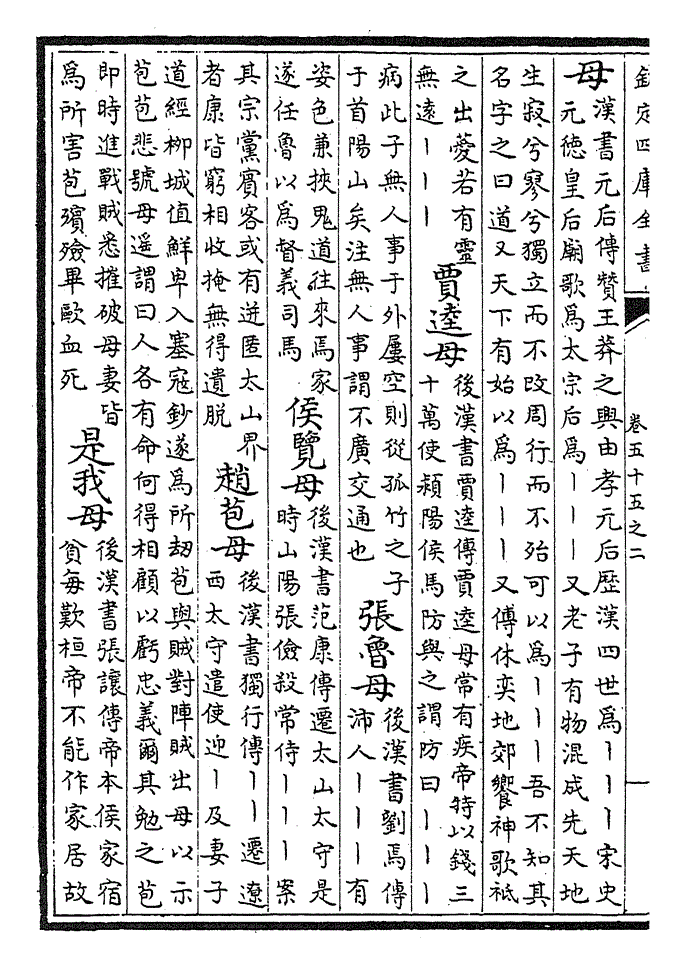 欽定四庫全書 卷五十五之二 一
母
漢書元后傳贊王莽之興由孝元后歴漢四世爲｜｜｜宋史
元徳皇后廟歌爲太宗后爲｜｜｜又老子有物混成先天地
生寂兮寥兮獨立而不改周行而不殆可以爲｜｜｜吾不知其
名字之曰道又天下有始以爲｜｜｜又傅休奕地郊饗神歌祗
之出薆若有靈
無遠｜｜｜
賈逵母
後漢書賈逵傳賈逵母常有疾帝特以錢三
十萬使潁陽侯馬防與之謂防曰｜｜｜
病此子無人事于外屢空則從孤竹之子
于首陽山矣注無人事謂不廣交通也
張魯母
後漢書劉焉傳
沛人｜｜｜有
姿色兼挾鬼道往來焉家
遂任魯以爲督義司馬
侯覽母
後漢書范康傳遷太山太守是
時山陽張儉殺常侍｜｜｜案
其宗黨賓客或有迸匿太山界
者康皆窮相收掩無得遺脱
趙苞母
後漢書獨行傳｜｜遷遼
西太守遣使迎｜及妻子
道經柳城值鮮卑入塞寇鈔遂爲所劫苞與賊對陣賊出母以示
苞苞悲號母遥謂曰人各有命何得相顧以虧忠義爾其勉之苞
即時進戰賊悉摧破母妻皆
爲所害苞殯殮畢歐血死
是我母
後漢書張讓傳帝本侯家宿
貧每歎桓帝不能作家居故